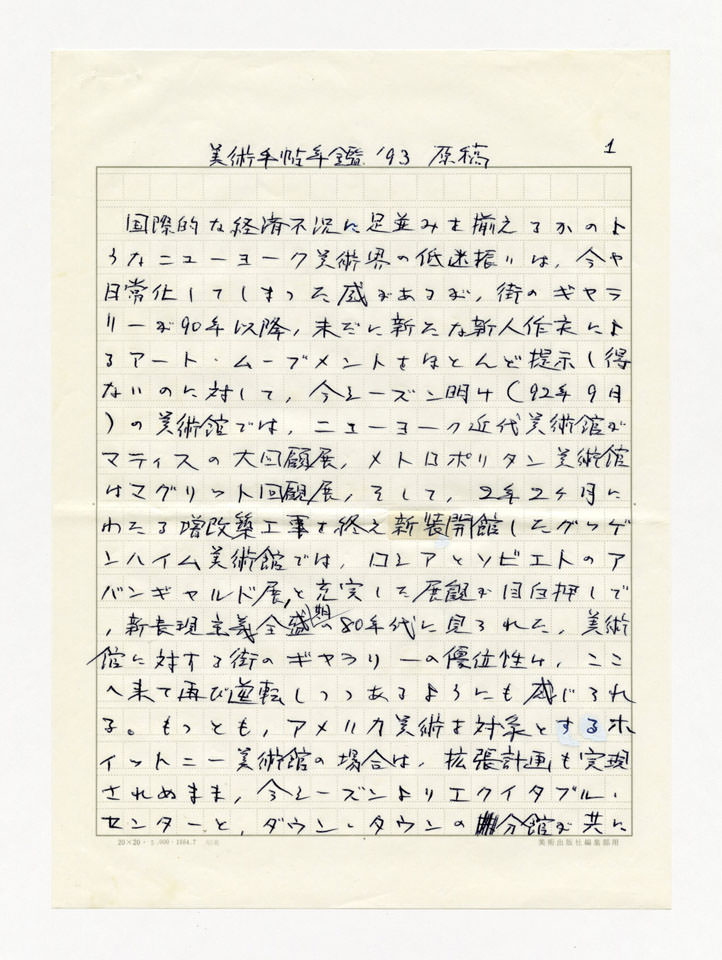 美術手帖年鑑 '93 原稿
1
国際的な経済不況に足並みを揃えるかのよ
うなニューヨーク美術界の低迷振りは、今や
日常化してしまった感があるが、街のギャラ
リーが90年以降、未だに新たな新人作家によ
るアート・ムーブメントをほとんど提示し得
ないのに対して、今シーズン明け(92年9月
)の美術館では、ニューヨーク近代美術館が
マティスの大回顧展、メトロポリタン美術館
はマグリット回顧展、そして、2年2ヶ月に
わたる増改築工事を終え新装開館したグッゲ
ンハイム美術館では、ロシアとソビエトのア
バンギャルド展、と充実した展観が目白押しで
、新表現主義全盛期の80年代に見られた、美術
館に対する街のギャラリーの優位性は、ここ
へ来て再び逆転しつつあるようにも感じられ
る。もっとも、アメリカ美術を対象とするホ
イットニー美術館の場合は、拡張計画も実現
されぬまま、今シーズンよりエクイタブル・
センターと、ダウン・タウンの分館が共に
20×20・5,000・1984.7
美術出版社編集部用